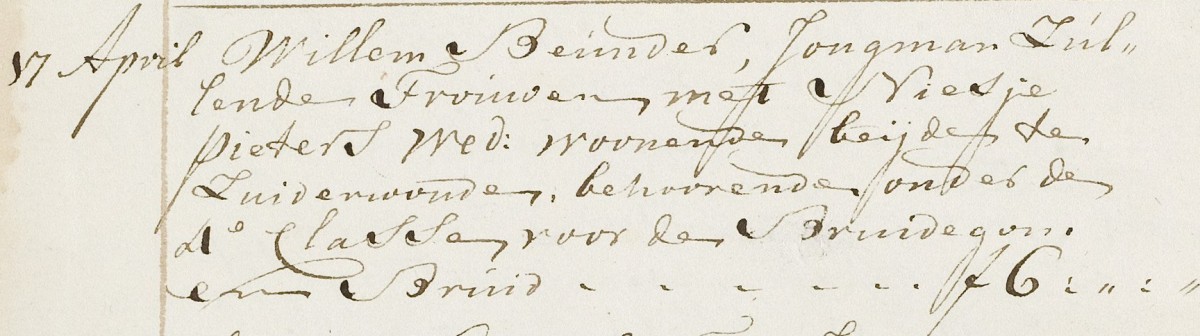 17 April Willem Beunder, Jongman Zúl„
lende Trouwen, met Niesje
Pieters Wed: woonende beijde te
Zuiderwoude, behoorende onder de
4e Classe, voor de Bruidegom.
en Brúid - - - - - . . f 6 : „ : „